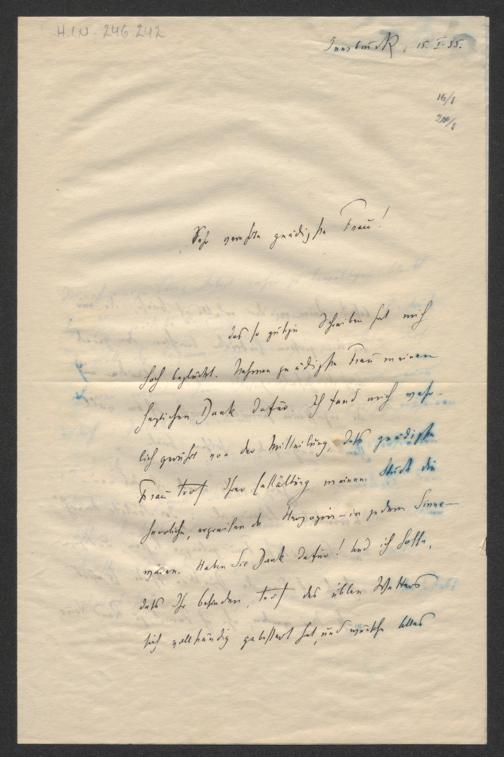 H.I.N. 246 242
Innsbruck, 15. I. 35.
16/I
Sehr verehrte gnädigste Frau!
das so gütige Schreiben hat mich
hoch beglückt. Nehmen gnädigste Frau meinen
herzlichen Dank dafür. Ich fand mich wahr-
lich gerührt von der Mitteilung, daß gnädigste
Frau trotz Ihrer Erkältung meinem Stück die
herrliche, ergreifende Herzogin – in jedem Sinne –
wären. Haben Sie Dank dafür! Und ich hoffe,
daß Ihr Befinden, trotz des üblen Wetters
sich vollständig gebessert hat, und wünsche Alles